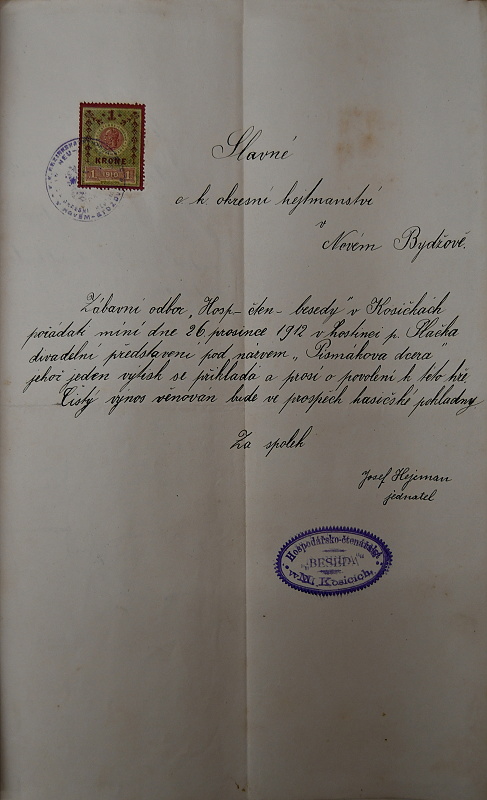 1
KRONE
1 1910 1
V NOVÉM-BYDŽOVĚ
Slavné
c k. okresní hejtmanství
v
Novém Bydžově.
Zábavní odbor „Hosp- čten- besedy" v Kosičkách
pořádati míní dne 26. prosince 1912 v hostinci p. Slačka
divadelní představení pod názvem „Písmákova dcera"
jehož jeden výtisk se přikládá a prosí o povolení k této hře.
Čistý výnos věnován bude ve prospěch hasičské pokladny.
Za spolek
Josef Hejeman
jednatel
Hospodářsko-čtenářská
„BESEDA"
v M. Kosicích.